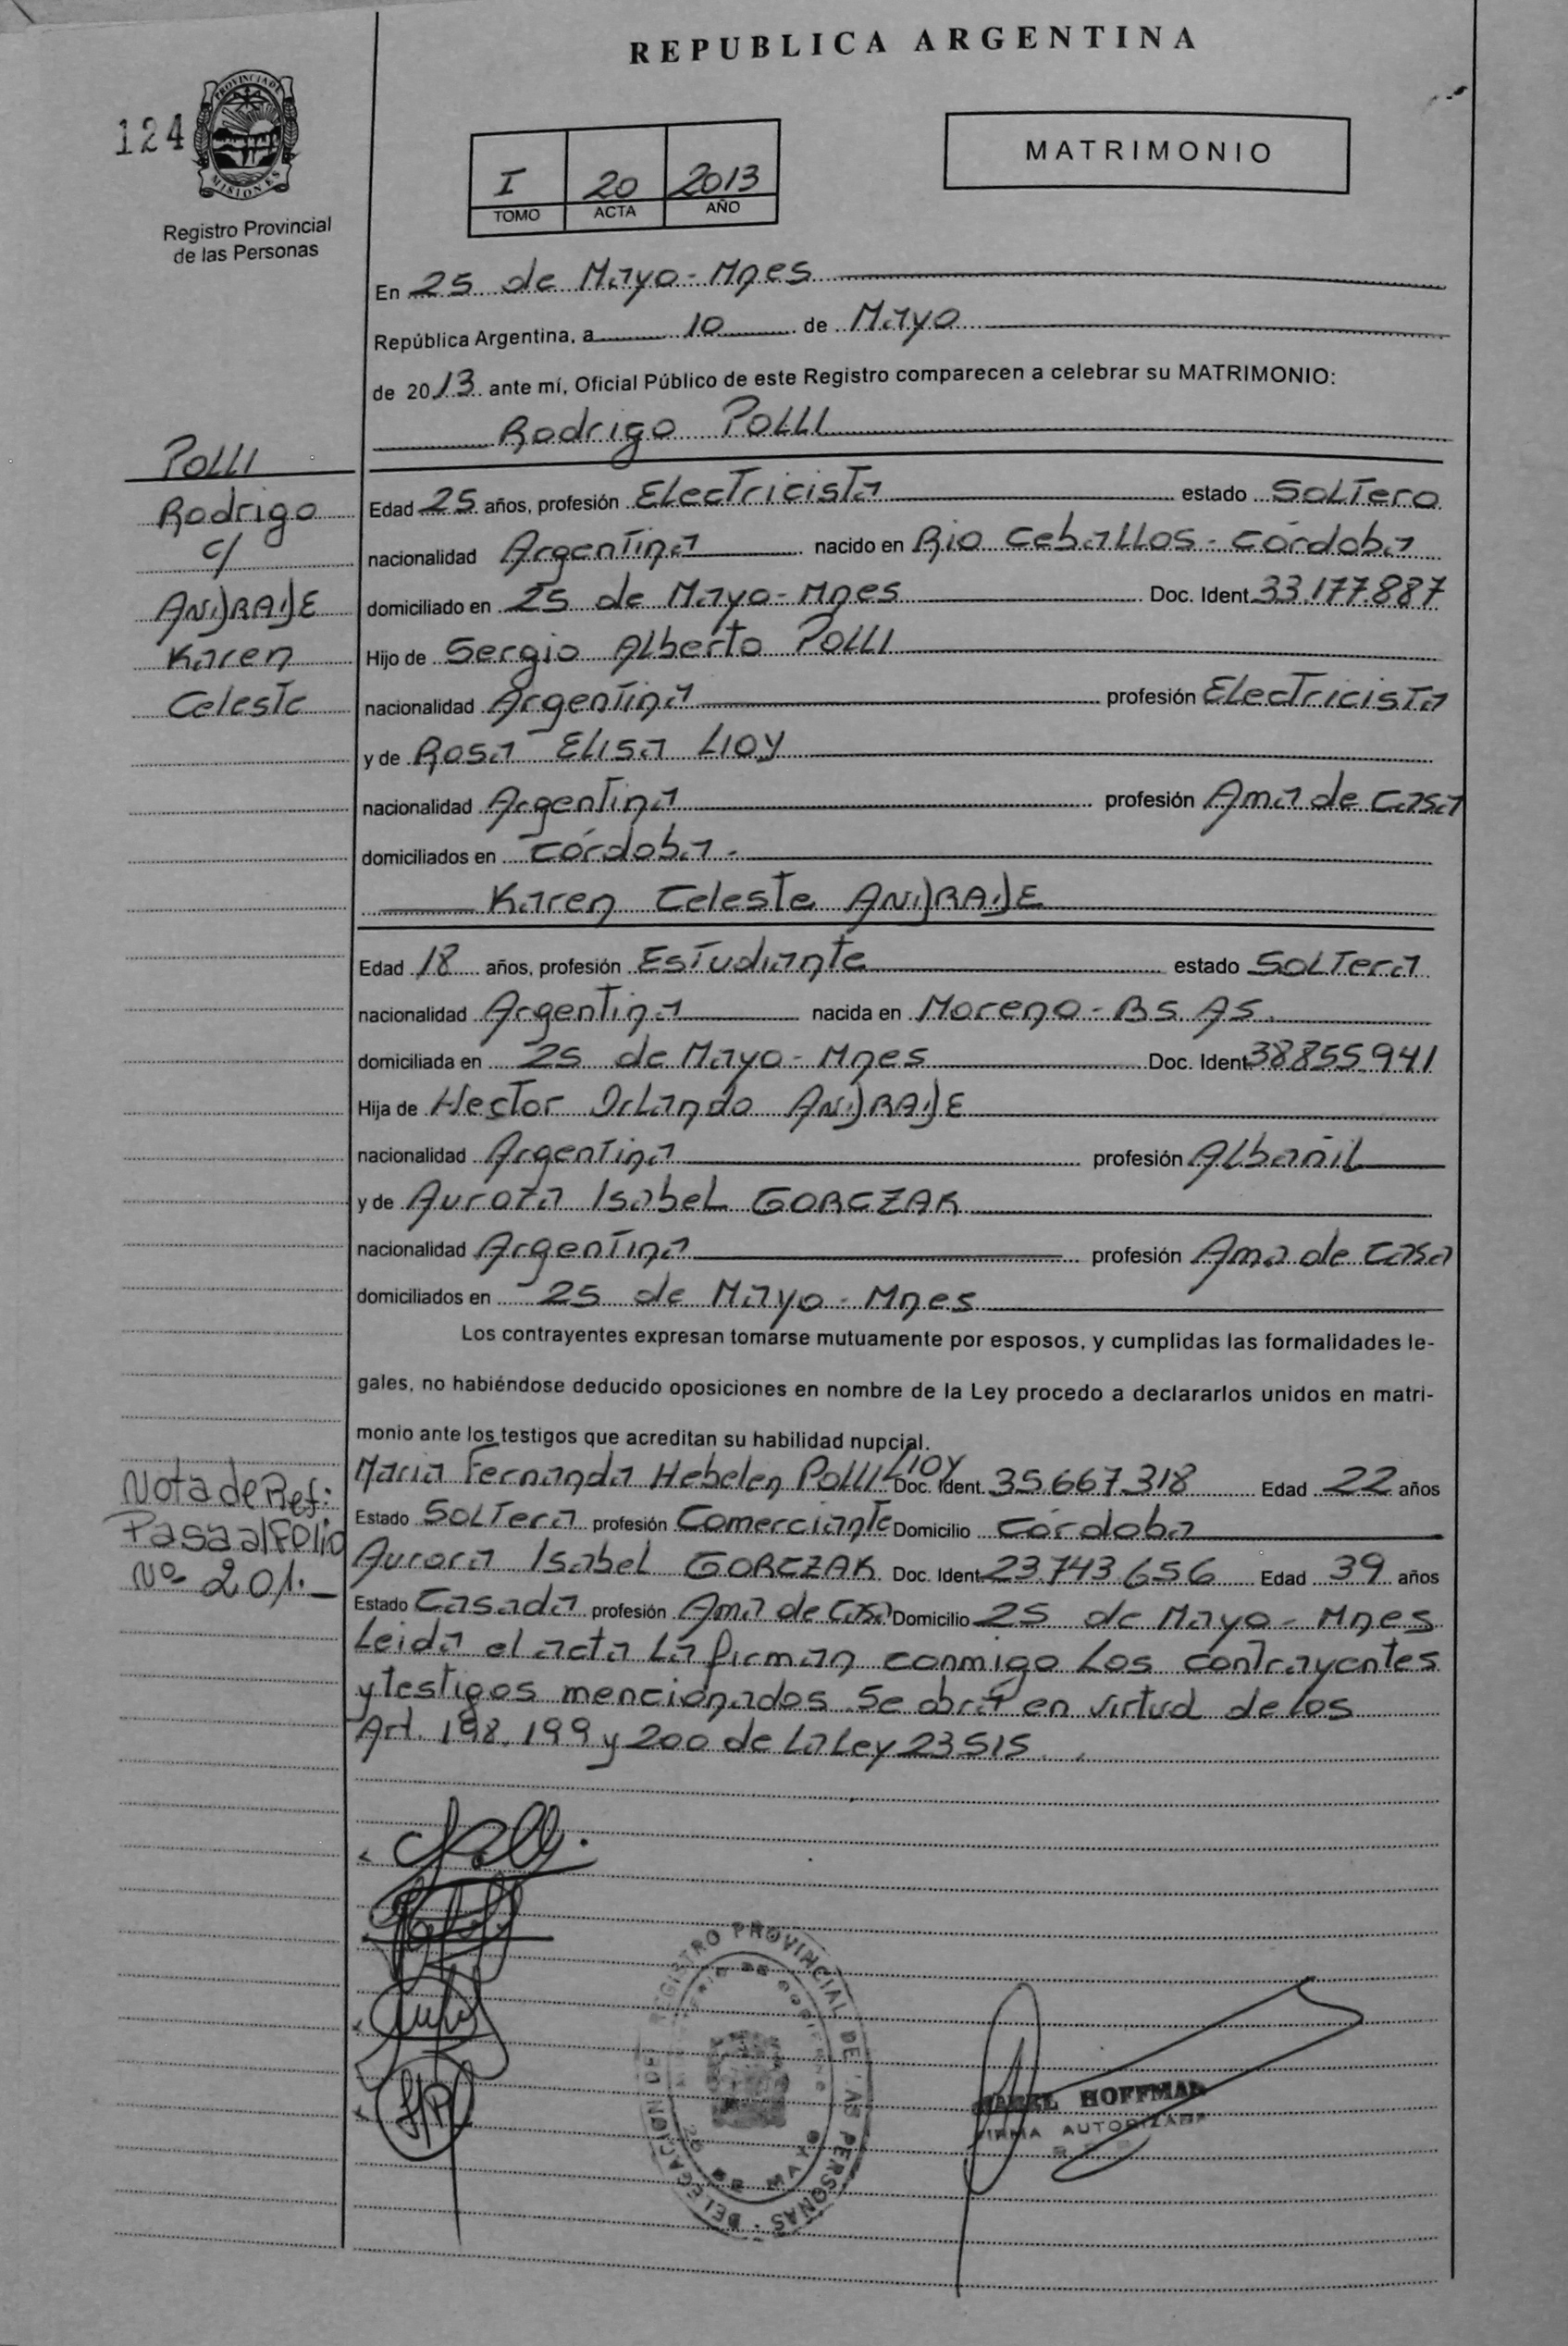 REPUBLICA ARGENTINA
124
PROVINCIA DE
MISIONES
Registro Provincial
de las Personas
I 20 2013
TOMO ACTA AÑO
MATRIMONIO
En 25 de Mayo - Mnes
República Argentina, a 10 de Mayo
de 2013 ante mí, Oficial Público de este Registro comparecen a celebrar su MATRIMONIO:
Rodrigo POLLI
POLLI
Rodrigo
c/
ANDRADE
Karen
Celeste
Edad 25 años, profesión Electricista estado Soltero
nacionalidad Argentina nacido en Rio Ceballos - Córdoba
domiciliado en 25 de Mayo - Mnes Doc. Ident. 33.177.887
Hijo de Sergio Alberto POLLI
nacionalidad Argentina profesión Electricista
y de Rosa Elisa LIOY
nacionalidad Argentina profesión Ama de casa
domiciliados en Córdoba -
Karen Celeste ANDRADE
Edad 18 años, profesión Estudiante estado Soltera
nacionalidad Argentina nacida en Moreno - Bs As.
domiciliada en 25 de Mayo - Mnes Doc. Ident. 38855.941
Hija de Hector Orlando ANDRADE
nacionalidad Argentina profesión Albañil
y de Aurora Isabel GORCZAK
nacionalidad Argentina profesión Ama de casa
domiciliados en 25 de Mayo - Mnes
Los contrayentes expresan tomarse mutuamente por esposos, y cumplidas las formalidades le-
gales, no habiéndose deducido oposiciones en nombre de la Ley procedo a declararlos unidos en matri-
monio ante los testigos que acreditan su habilidad nupcial.
Maria Fernanda Hebelen POLLI LIOY Doc. Ident. 35.667.318 Edad 22 años
Estado Soltera profesión Comerciante Domicilio Córdoba
Aurora Isabel GORCZAK Doc. Ident. 23.743.656 Edad 39 años
Estado Casada profesión Ama de casa Domicilio 25 de Mayo - Mnes
Nota de Ref:
Pasa al Folio
Nº 201.-
Leida el acta la firman conmigo los contrayentes
y testigos mencionados. Se obró en virtud de los
Art. 198, 199 y 200 de la Ley 23515.
REGISTRO PROVINCIAL DE LAS PERSONAS - DELEGACION
25 DE MAYO
HOFFMAN
FIRMA AUTORIZADA